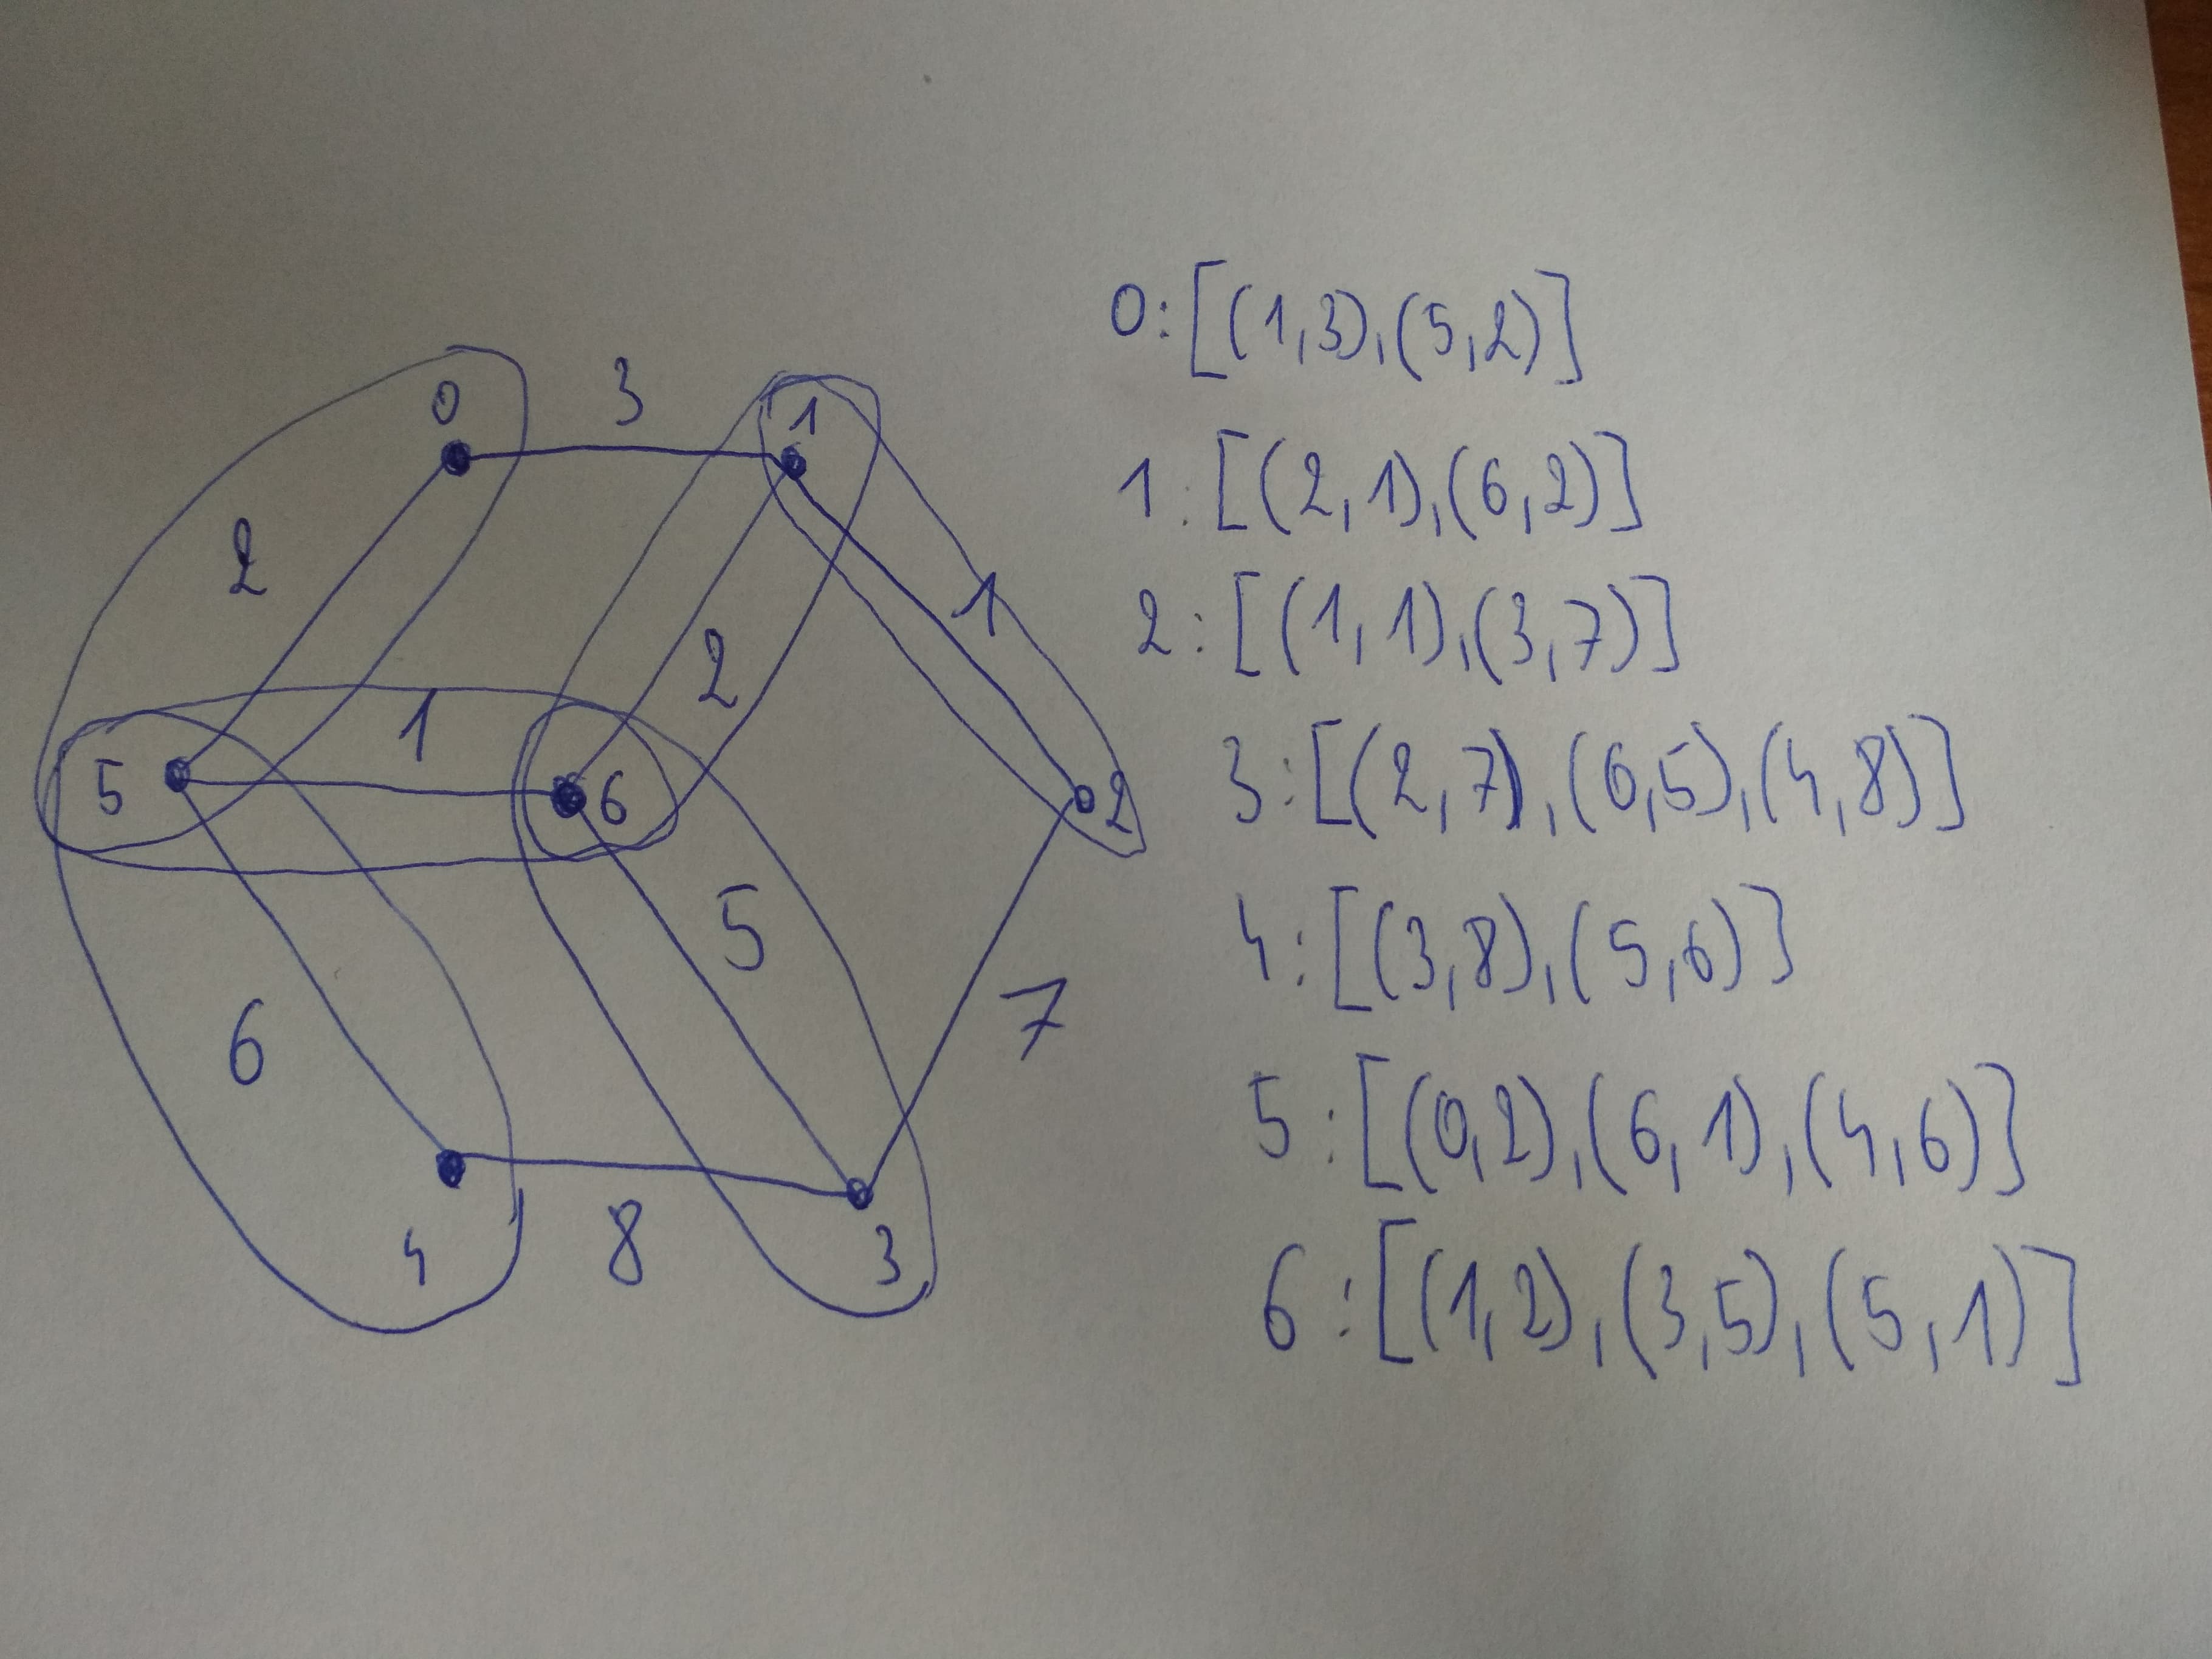 0
3
1
2
1
2
1
5
6
2
5
6
7
8
4
3
0:[(1,3),(5,2)]
1:[(2,1),(6,2)]
2:[(1,1),(3,7)]
3:[(2,7),(6,5),(4,8)]
4:[(3,8),(5,6)]
5:[(0,2),(6,1),(4,6)]
6:[(1,2),(3,5),(5,1)]